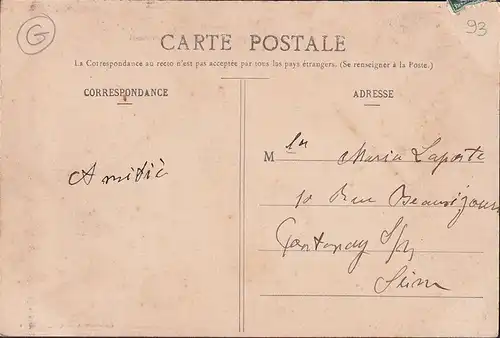 G
93
CARTE POSTALE
La Correspondance au recto n'est pas acceptée par tous les pays étrangers. (Se renseigner à la Poste.)
CORRESPONDANCE
ADRESSE
Amitié
M lle Maria Laporte
10 Rue Beauséjour
Fontenay S/B
Seine